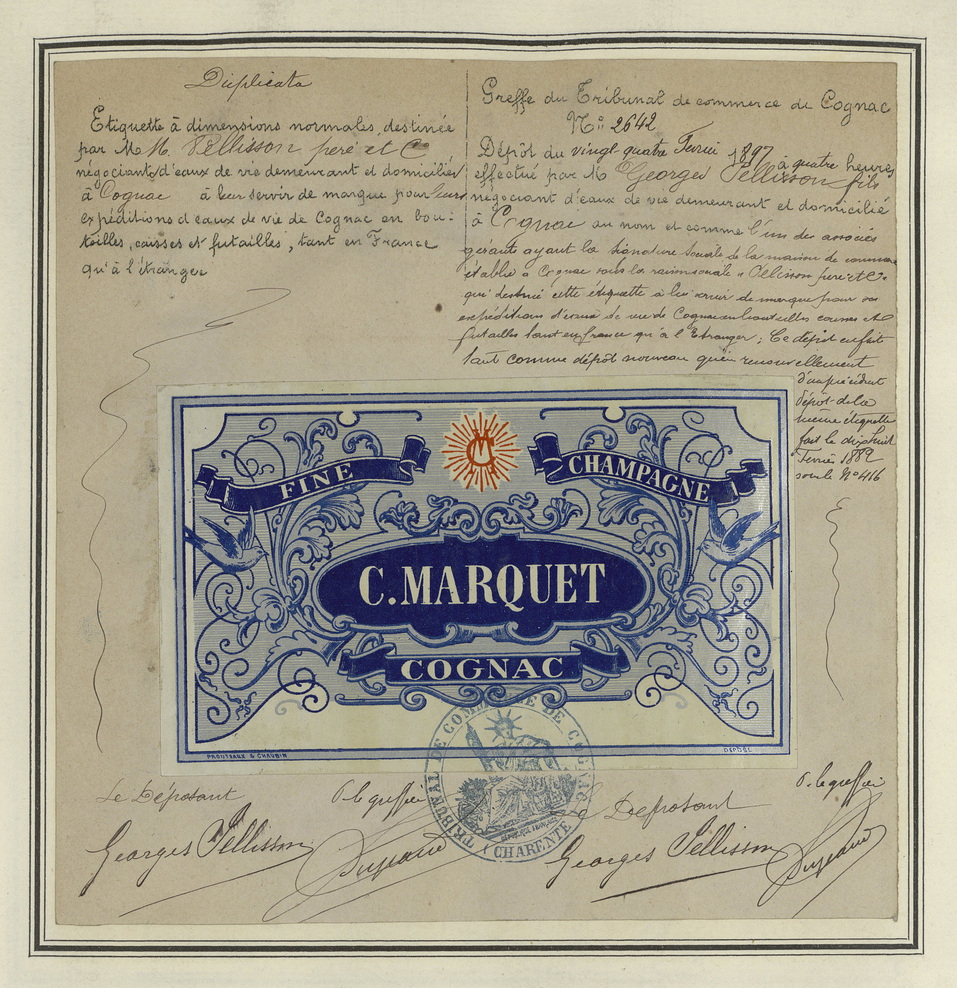 Duplicata
Étiquette à dimensions normales, destinée
par M M. Pellisson père et Cie
négociants d'eaux de vie demeurant et domiciliés
à Cognac à leur servir de marque pour leurs
expéditions d'eaux de vie de Cognac en bou-
teilles, caisses et futailles, tant en France
qu'à l'étranger
Greffe du Tribunal de commerce de Cognac
N° 2642
Dépôt du vingt-quatre Février 1897 à quatre heures
effectué par M Georges Pellisson fils
négociant d'eaux de vie demeurant et domicilié
à Cognac au nom et comme l'un des associés
gérants ayant la signature sociale de la maison de commerce
établie à Cognac sous la raison sociale « Pellisson père et Cie
qui destine cette étiquette à leur servir de marque pour ses
expéditions d'eaux de vie de Cognac en bouteilles caisses et
futailles tant en France qu'à l'Etranger ; Ce dépôt est fait
tant comme dépôt nouveau qu'en renouvellement
d'un précédent
dépôt de la
même étiquette
fait le dix huit
Février 1882
sous le N° 416
FINE
CM
CHAMPAGNE
C. MARQUET
COGNAC
PROUTEAUX & CHAUBIN
DÉPOSÉ
TRIBUNAL DE COMMERCE DE COGNAC
RÉPUBLIQUE FRANÇAISE
( CHARENTE )
Le Déposant
P. le greffier
Le Déposant
P. le greffier
Georges Pellisson
Georges Pellisson